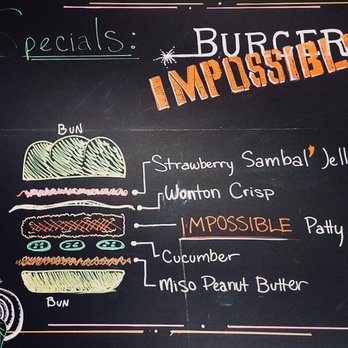 Specials:
BURGER
IMPOSSIBLE
BUN
Strawberry Sambal' Jell
Wonton Crisp
IMPOSSIBLE Patty
Cucumber
Miso Peanut Butter
BUN